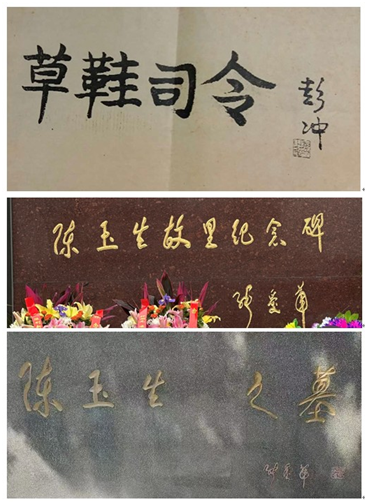 草鞋司令
彭冲
陈玉生故里纪念碑
张爱萍
陈玉生 之墓
张爱萍